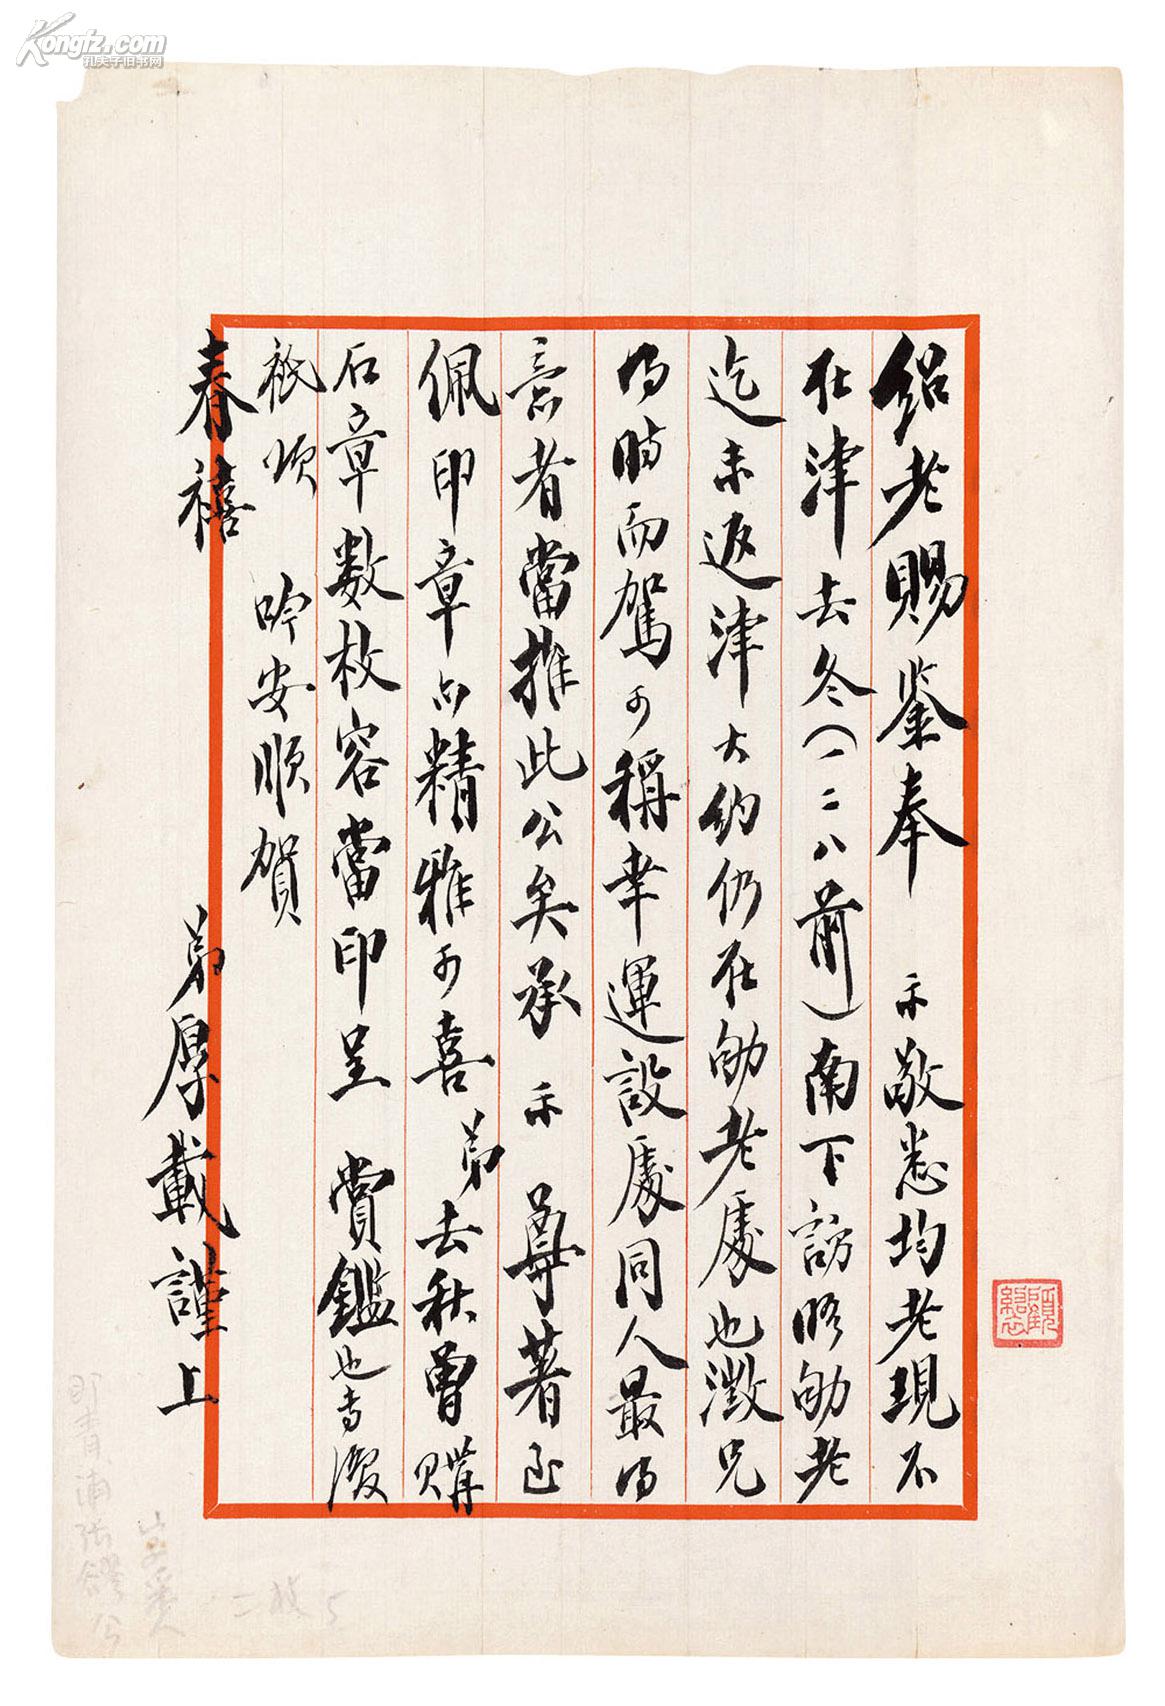 绍老賜鉴奉 示敬悉均老現不
在津去冬（一二八前）南下訪晤劬老
迄未返津大約仍在劬老處也澂兄
得時而駕可稱幸運設處同人最得
意者當推此公矣承 示 尊著至
佩印章亦精雅可喜弟去秋曾購
石章數枚容當印呈 賞鑑也专復
祇頌
吟安順賀
春禧
弟厚載謹上
Kongfz.com
孔夫子旧书网
即青浦張公
二枚